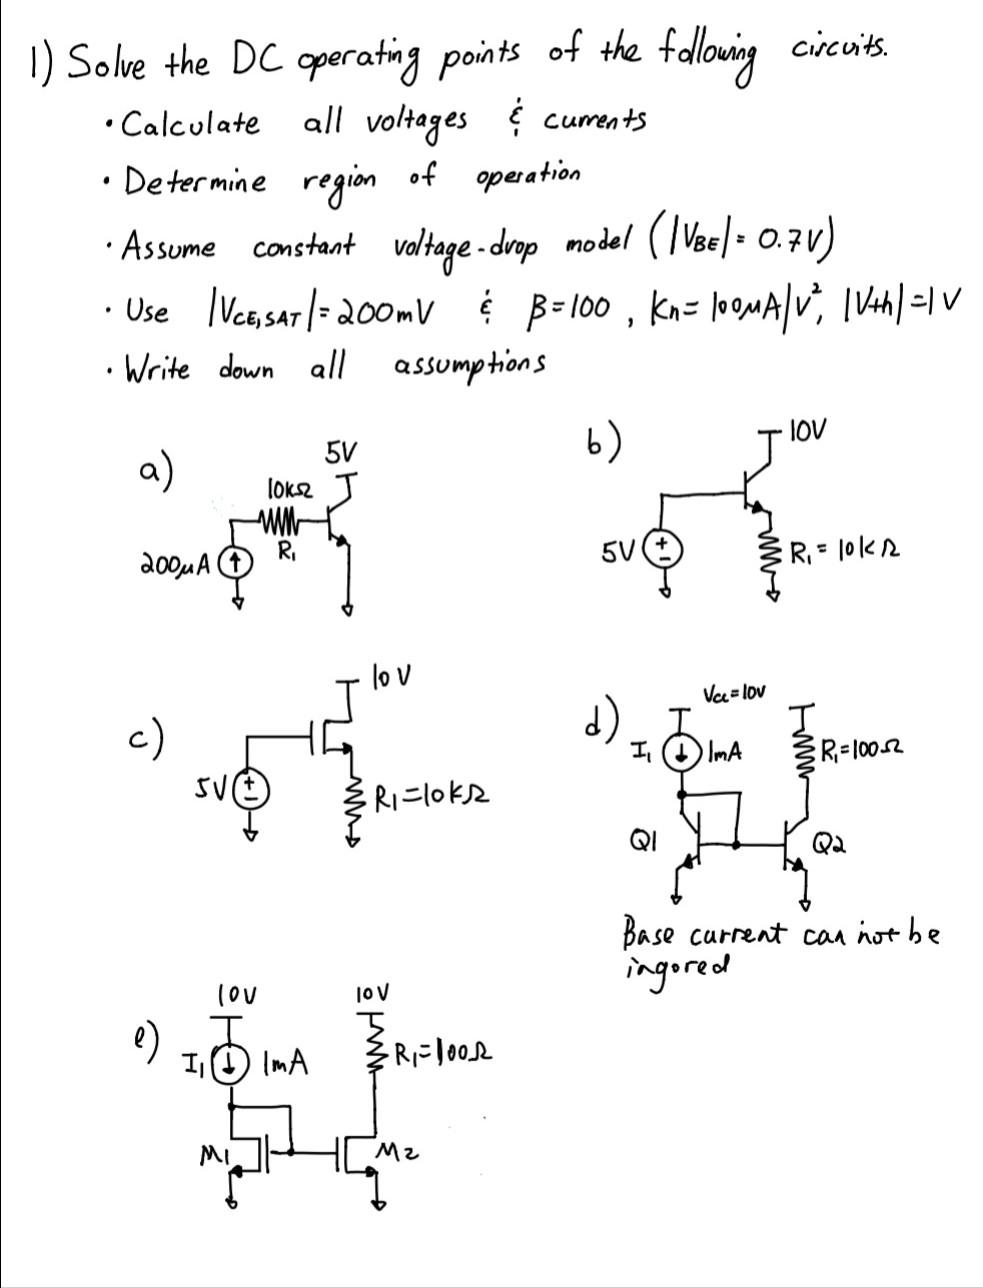 1) Solve the DC operating points of the following circuits.
• Calculate all voltages & currents
• Determine region of operation
• Assume constant voltage-drop model (|VBE| = 0.7V)
• Use |VCE,SAT| = 200mV & β=100, Kn= 100μA/V², |Vth|=1V
• Write down all assumptions
a)
5V
10kΩ
R1
200μA
b)
10V
5V
R1 = 10kΩ
c)
10V
5V
R1=10kΩ
d)
Vcc=10V
I1
1mA
R1=100Ω
Q1
Q2
Base current can not be
ingored
e)
10V
10V
I1
1mA
R1=100Ω
M1
M2